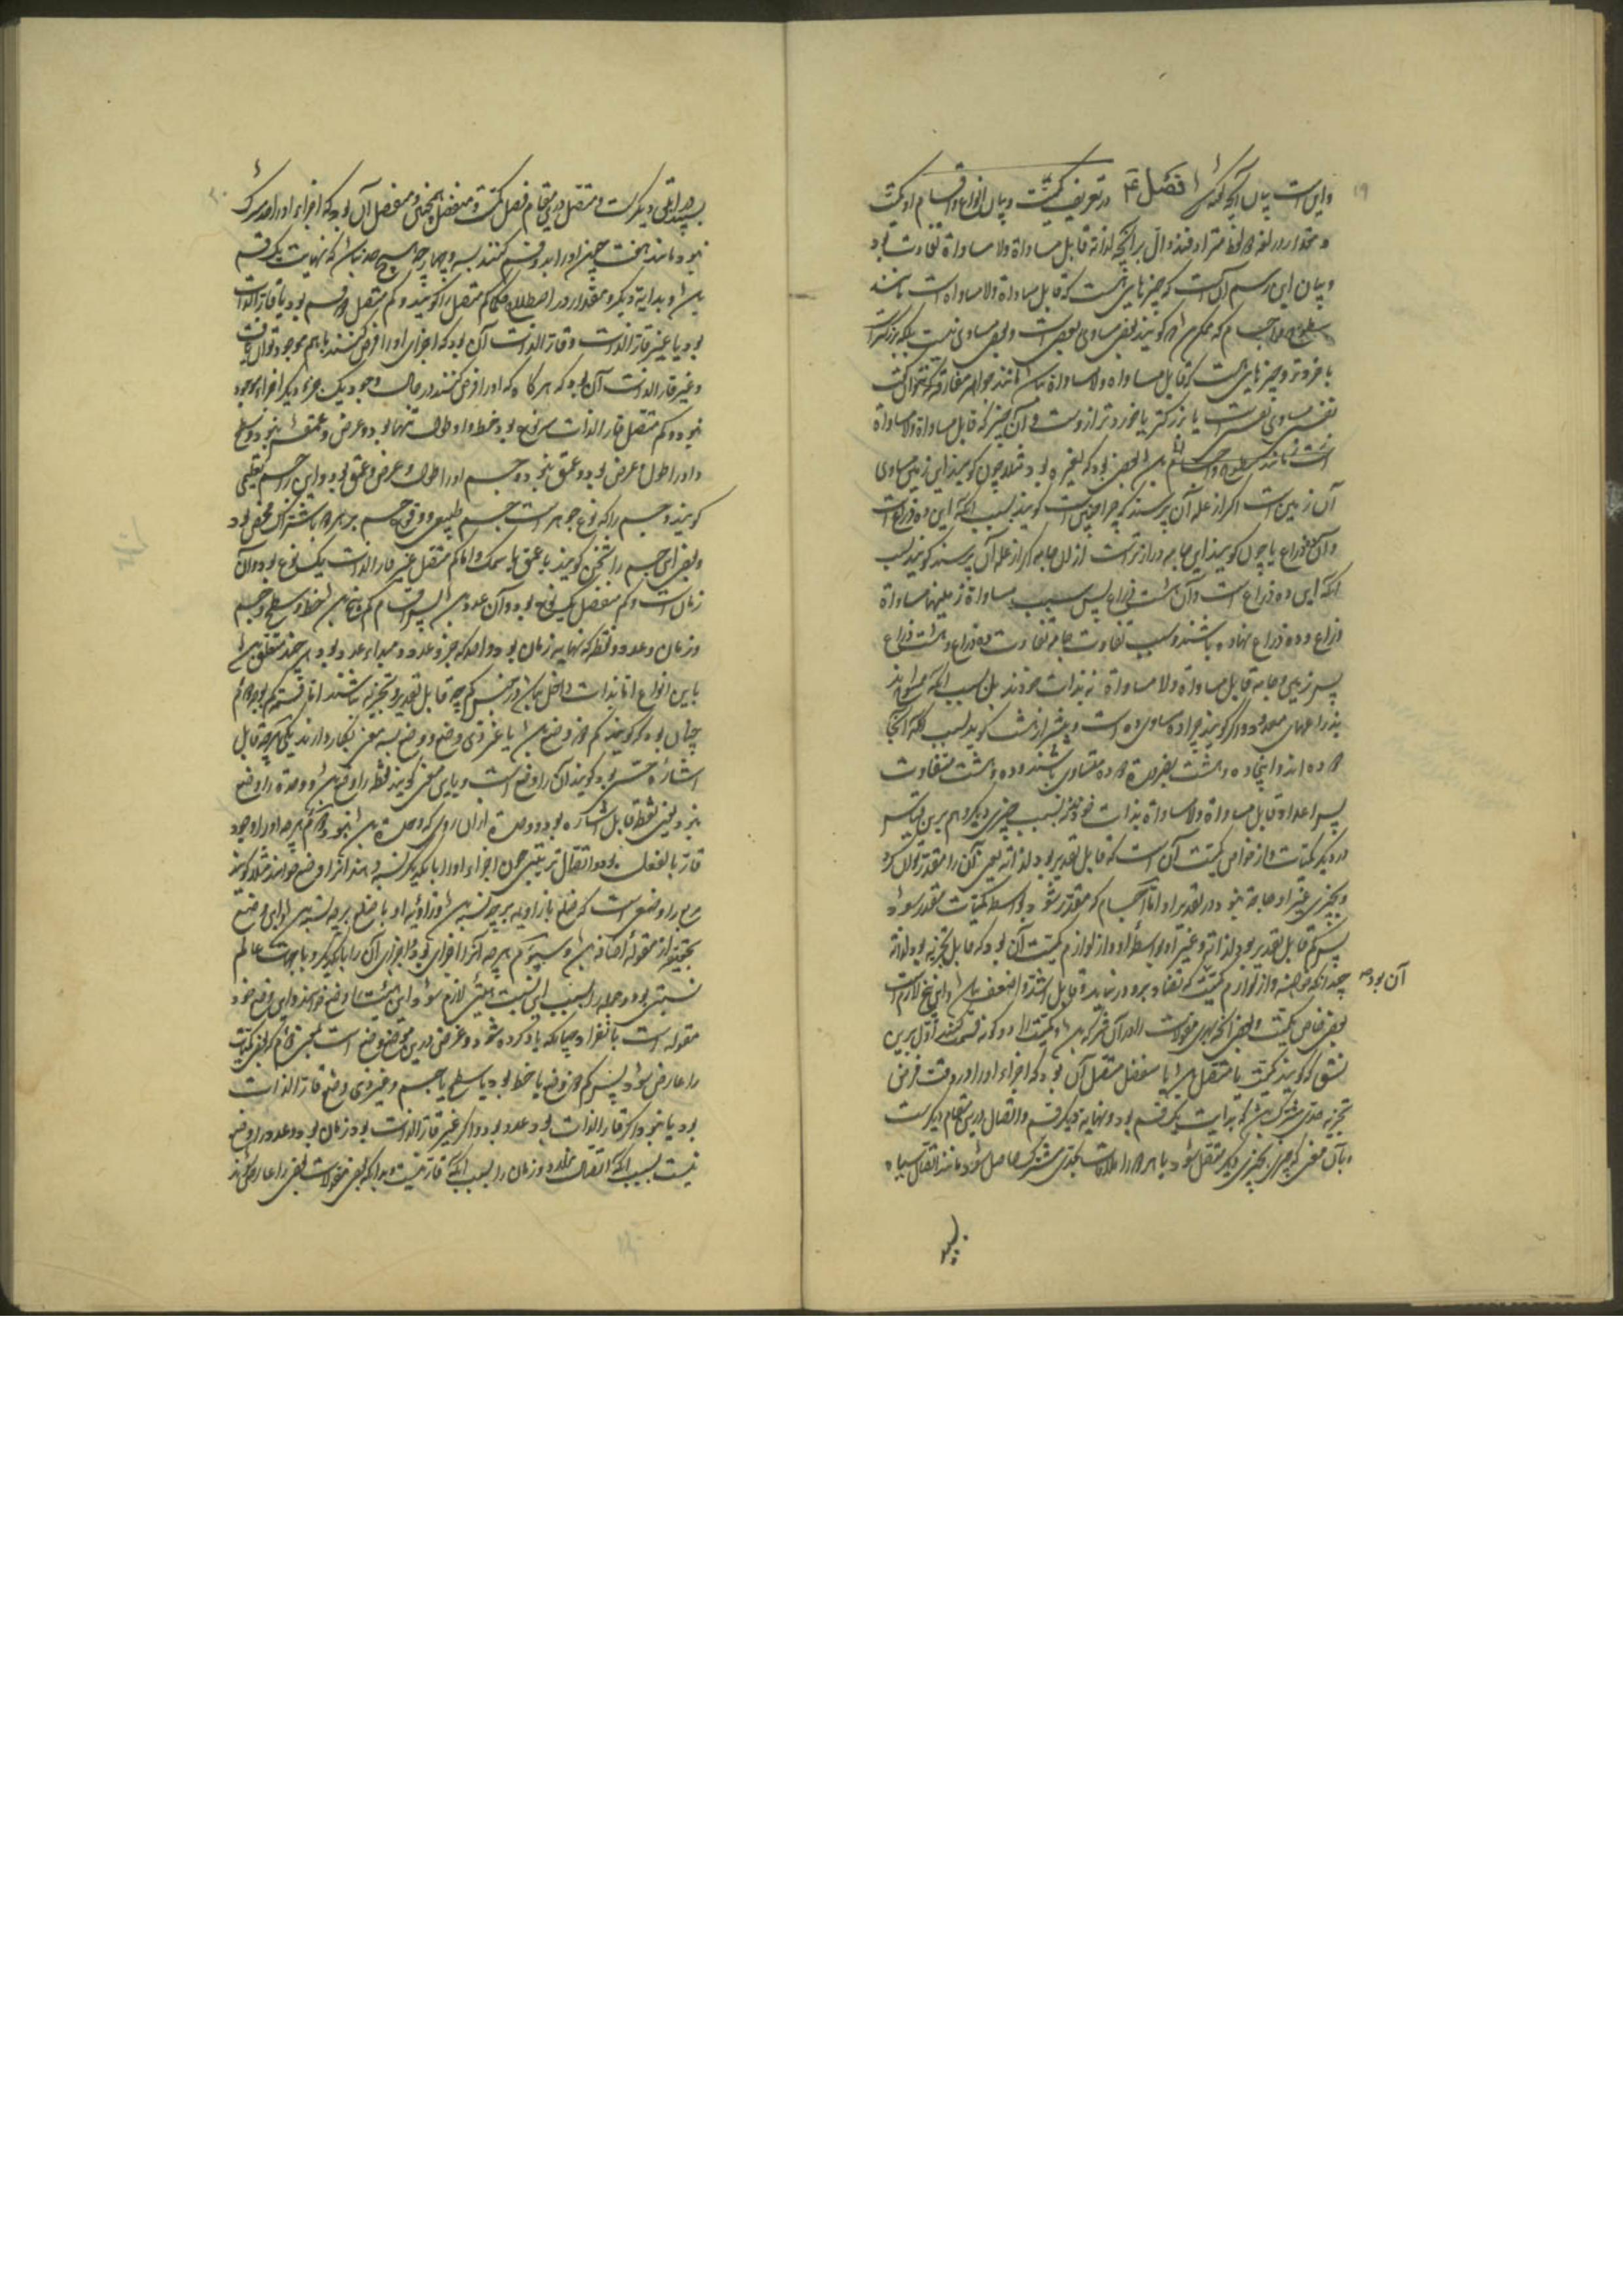 ۱۹
و این است بیان آنچه گفته‌اند فصل ۳ در تعریف کمیت و بیان انواع و اقسام او کمیت
و مقدار در لغة دو لفظ مترادفند دال بر آنچه لذاته قابل مساواة ولا مساواة تفاوت بود
و بیان این رسم آنست که چیزهایی هست که قابل مساواة ولا مساواة است مانند
سطوح و اجسام که ممکن گویند بعضی مساوی بعضی است و بعضی مساوی نیست بلکه بزرگتر است
یا خردتر و چیزهایی هست که قابل مساواة ولا مساواة مانند جواهر مفارقه که نتوان گفت
نفسی مساوی نفسی است یا بزرگتر یا خوردتر ازوست و آن چیز که قابل مساواة ولا مساواة
است مانند سطوح و اجسام بعضی بود که لغیره بود مثلا چون گویند این زمین مساوی
آن زمین است اگر از علة آن پرسند که چرا چنین است گویند بسبب آنکه این ده ذراع است
و آن ذراع یا چون گویند این جامه درازتر است از آن جامه اگر از علة آن پرسند گویند بسبب
آنکه این ده ذراع است و آن هشت ذراع پس سبب مساواة زمینها مساواة
ذراع و ده ذراع نهاده باشند و سبب تفاوت جامه تفاوت ده ذراع و هشت ذراع
پس زمین و جامه قابل مساواة ولا مساواة نه بذات خودند بل بسبب آنکه
بذراعهای معدود و اگر گویند چرا ده مساوی ده است و بیشتر از هشت گوید بسبب آنکه آنجا
ده اند و اینجا ده و هشت بضرورة ده ده متساوی باشند و ده و هشت متفاوت
پس اعداد قابل مساواة ولا مساواة بذات خودند نه بسبب چیزی دیگر و هم برین قیاس
در دیگر کمیات و از خواص کمیت آن است که قابل تقدیر بود لذاته یعنی آن را مقدر توان کرد
و بچیزی غیر او حاجة نبود در تقدیر او اما اجسام که مقدر شود بواسطة کمیات مقدر شود
پس کم قابل تقدیر بود لذاته و غیر او بواسطة او و از لوازم کمیت آن بود که قابل تجزیه بود لذاته
چندانکه خواهند و از لوازم کمیت که تضاد برو در نیاید و قابل اشد و اضعف و این لازم است
آن بود
بعضی خاص کمیت و بعضی آنکه دیگر مقولات را در آن شرکة و کمیت را دو گونه قسمت کنند اول برین
نسق که گویند کمیت یا متصل یا منفصل متصل آن بود که اجزاء او را در وقت فرض
تجزیه حدی مشترک که بدایت یک قسم بود و نهایة دیگر قسم و اتصال درین مقام دیگرست
و بآن معنی که چیزی بچیزی دیگر متصل شود یا هر دو را ملاقات بحدی مشترک حاصل شود مانند اتصال سیاه
بسپید
۲۰
بسپید اتصالی دیگرست و متصل درین مقام فصل کمیت و منفصل همچنین و منفصل آن بود که اجزاء او را حد مشترک
نبود مانند هفت چون او را بدو قسم کنند بسه و چهار هیچ حد نباشد که نهایت یک قسم
و بدایة دیگر و مقدار در اصطلاح حکما کم متصل را گویند و کم متصل دو قسم بود یا قار الذات
بود یا غیر قار الذات و قار الذات آن بود که اجزای او را فرض کنند با هم موجود توان یافت
و غیر قار الذات آن بود که هرگاه که او را فرض کنند در حال وجود یک جزء دیگر اجزا موجود
نبود و کم متصل قار الذات سه نوع بود خط و او را طول تنها بود و عرض و عمق نبود و سطح
و او را طول و عرض بود و عمق نبود و جسم و او را طول و عرض و عمق بود و این را جسم تعلیمی
گویند و جسم را که نوع جوهر است جسم طبیعی و وقوع جسم بر هر دو باشتراک محض بود
و بعضی این جسم را ثخن گویند یا عمق یا سمک و اما کم متصل غیر قار الذات یک نوع بود و آن
زمان است و کم منفصل یک نوع بود و آن عدد پس اقسام کم پنج خط و سطح و جسم
و زمان و عدد و نقطه که نهایة زمان بود و واحد که جزء عدد و مبداء عدد بود هر چند متعلق
باین انواع اما بذات داخل در جنس کم چه قابل تقدیر و تجزیه نباشند اما قسمت کم بوجه دوم
چنان بود که گویند کم ذو وضع یا غیر ذی وضع و وضع بسه معنی بکار دارند یکی هر چه قابل
اشارة حسی بود گویند آن را وضع است و باین معنی گویند نقطه را وضع و وحدة را وضع
نبود یعنی نقطه قابل اشاره بود و وحدة ازان روی که وحدة نبود دوم هر چه او را وجود
قار بالفعل بود و اتصال و ترتیبی چون اجزاء او را با یکدیگر نسبة دهند آنرا وضع خوانند مثلا گویند
مربع را وضعی است که ضلع با زاویه بر چه نسبة و زاویه او با ضلع بر چه نسبة و این وضع
بحقیقة از مقوله اضافة و سیوم هر چه آنرا اجزای بود و اجزای آن را با یکدیگر و با جهات عالم
نسبتی بود و جمله را بسبب این نسبت هیئتی لازم شود این هیئت را وضع خوانند و این وضع خود
مقوله است بانفراد چنانکه یاد کرده شود و غرض درین موضع وضع است بمعنی دوم که بعضی کمیات
را عارض شود پس کم ذو وضع یا خط بود یا سطح یا جسم و غیر ذی وضع قار الذات
بود یا نبود اگر قار الذات بود عدد بود و اگر غیر قار الذات بود زمان بود و عدد را وضع
نیست بسبب آنکه اتصال ندارد و زمان را بسبب آنکه قار نیست و بدانکه بعضی مقولات بعضی را عارض شوند